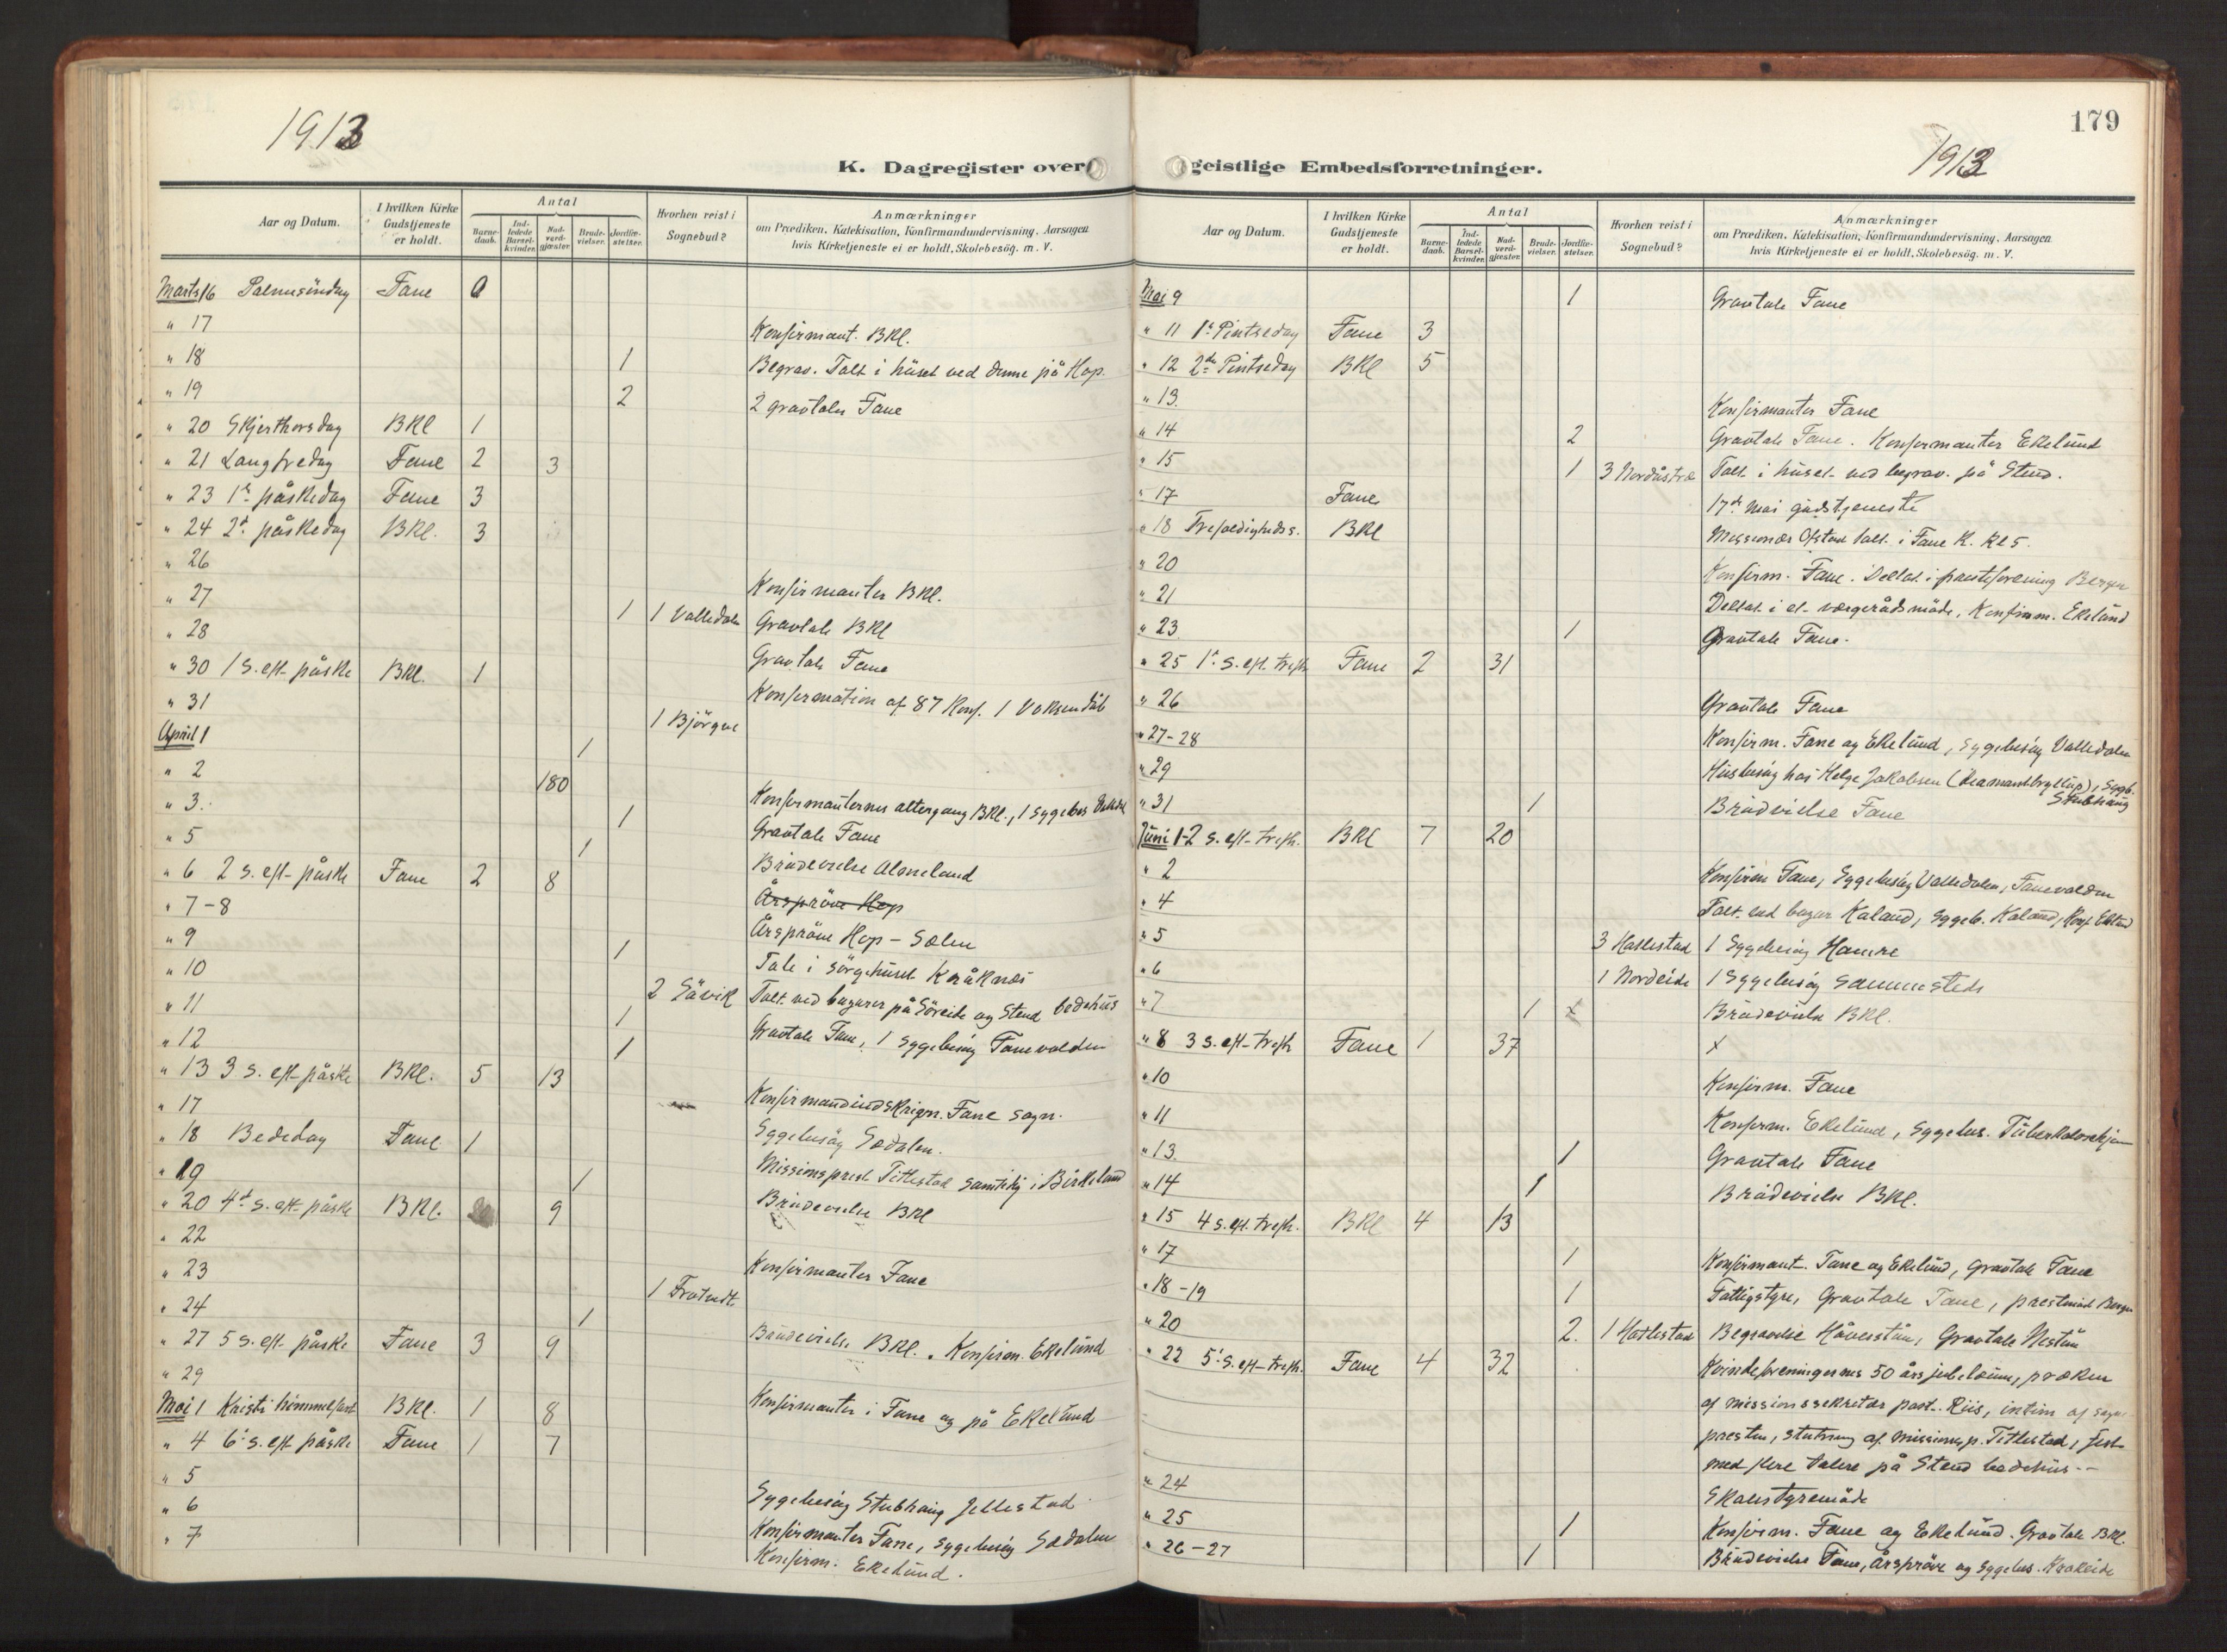 1913
K. Dagregister over
Aar og Datum.
I hvilken Kirke Gudstjeneste er holdt.
Antal
Barnedaab.
Indledede Barselkvinder.
Nadverdgjæster.
Brudevielser.
Jordfæstelser.
Hvorhen reist i Sognebud?
Anmærkninger
om Prædiken, Katekisation, Konfirmandundervisning, Aarsagen
hvis Kirketjeneste ei er holdt, Skolebesög. m. V.
Marts 16 Palmesöndag Fane 0
" 17 Konfirmant. BKl.
" 18 1 Begrav. Talt i huset ved denne på Hop.
" 19 2 2 gravtaler Fane
" 20 Skjerthorsdag BKl 1
" 21 Langfredag Fane 2 3
" 23 1ste påskedag Fane 3
" 24 2d påskedag BKl. 3
" 26 Konfirmanter BKl.
" 27 1 1 Valledalen Gravtale BKl
" 28 Gravtale Fane
" 30 1 S. eft. påske BKl. 1 Konfirmation af 87 Konf. 1 Voksendåb
" 31 1 Björge
April 1 1
" 2 180 Konfirmanternes altergang BKl., 1 sygebes
" 3. 1 Gravtale Fane
" 5 1 Brudevielse
" 6 2 S. eft. påske Fane 2 8 Årspröve Hop
" 7-8 Årspröve Hop - Sælen
" 9 1 Tale i sörgehuset Kråknes
" 10 2 Sævik Talt ved basarer på Söreide og Stend bedehus
" 11 1 Gravtale Fane, 1 sygebesög Fanevolden
" 12 1
" 13 3 S. eft. påske BKl. 5 13
" 17 Konfirmandindskrivn. Fane sogn.
" 18 Bededag Fane 1 Sygebesög Sædalen.
" 19 1 Missionsprest Titlestad samtidig i Birkeland
" 20 4d S. eft. påske BKl. 9 Brudevielse BKl
" 22
" 23 Konfirmanter Fane
" 24 1
" 27 5 S. eft. påske Fane 3 9 Brudevielse BKl. Konfirm. Ekelund
" 29
Mai 1 Kristi himmelfart BKl. 1 8 Konfirmanter i Fane og på Ekelund
" 4 6te S. eft. påske Fane 1 7
" 5 Sygebesög Stubhaug Jellestad
" 6 Konfirmanter Fane, sygebesög Sædalen
" 7 Konfirm. Ekelund.
179
1913
geistlige Embedsforretninger.
Aar og Datum.
I hvilken Kirke Gudstjeneste er holdt.
Antal
Barnedaab.
Indledede Barselkvinder.
Nadverdgjæster.
Brudevielser.
Jordfæstelser.
Hvorhen reist i Sognebud?
Anmærkninger
om Prædiken, Katekisation, Konfirmandundervisning, Aarsagen
hvis Kirketjeneste ei er holdt, Skolebesög. m. V.
Mai 9 1 Gravtale Fane
" 11 1ste Pintsedag Fane 3
" 12 2den Pintsedag BKl 5
" 13. Konfirmanter Fane
" 14 2 Gravtale Fane. Konfirmanter Ekelund
" 15 1 3 Nordåstræ Talt i huset ved begrav. på Stend.
" 17 Fane 17de Mai gudstjeneste
" 18 Trefoldigheds s. BKl Missionær Ofstad talt i Fane K. Kl 5.
" 20 Konfirm. Fane. Deltat i presteforening Bergen
" 21 Deltat i et værgerådsmöde, Konfirm. Ekelund
" 23 1 Gravtale Fane.
" 25 1ste S. eft. trefh Fane 2 31
" 26 Gravtale Fane
" 27-28 Konfirm. Fane og Ekelund, Sygebesög Valledalen
" 29 Husbesög hos Helge Jakobsen (Diamantbryllup), Sygb. Stubhaug
" 31 1 Brudevielse Fane
Juni 1 2 S. eft. trefh. BKl 7 20
" 2 Konfirm Fane, Sygebesög Valledalen, Fanevolden
" 4 Talt ved basar Kaland, sygeb. Kaland, Konf Eklund
" 5 3 Hatlestad 1 Sygebesög Hamre
" 6 1 Nordeide 1 Sygebesög sammesteds
" 7 1 x Brudevielse BKl.
" 8 3 S. eft. trefh Fane 1 37 x
" 10 Konfirm. Fane
" 11 Konfirm. Ekelund, sygebes. Tuberkulosehjem
" 13. 1 Gravtale Fane
" 14 1 Brudevielse BKl.
" 15 4 S. eft. trefh. BKl 4 13
" 17 1 Konfirmant. Fane og Ekelund, gravtale Fane
" 18-19 1 Fattigstyre, Gravtale Fane, prestemöte Bergen
" 20 2. 1 Hatlestad Begravelse Håverstün, Gravtale Nestün
" 22 5te S. eft. trefh. Fane 4 32 Kvindeforeningernes 50 års jubelæum, præken
af missionssekretær past. Riis, intim af sogne-
presten, slutning af missionsp. Titlestad, fest
med flere talere på Stend bedehus --
" 24 Skolestyremöde
" 25 1 Konfirm. Fane og Ekelund. Gravtale BKl.
" 26-27 1 Brudevielse Fane, Årspröve og sygebes. Krokeide